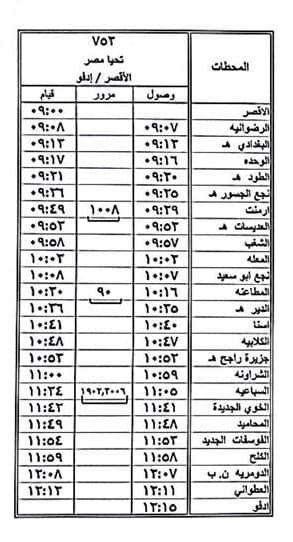 ٧٥٣
تحيا مصر
الأقصر / إدفو
المحطات
وصول مرور قيام
الاقصر ٠٩:٠٠
الرضوانيه ٠٩:٠٧ ٠٩:٠٨
البغدادي هـ ٠٩:١٢ ٠٩:١٣
الوحده ٠٩:١٦ ٠٩:١٧
الطود هـ ٠٩:٢٠ ٠٩:٢١
نجع الجسور هـ ٠٩:٢٥ ٠٩:٢٦
ارمنت ٠٩:٢٩ ١٠٠٨ ٠٩:٤٩
العديسات هـ ٠٩:٥٢ ٠٩:٥٣
الشغب ٠٩:٥٧ ٠٩:٥٨
المعله ١٠:٠٢ ١٠:٠٣
نجع ابو سعيد ١٠:٠٧ ١٠:٠٨
المطاعنه ١٠:١٦ ٩٠ ١٠:٣٠
الدير هـ ١٠:٣٥ ١٠:٣٦
اسنا ١٠:٤٠ ١٠:٤١
الكلابيه ١٠:٤٧ ١٠:٤٨
جزيرة راجح هـ ١٠:٥٢ ١٠:٥٣
الشراونه ١٠:٥٩ ١١:٠٠
السباعيه ١١:٠٥ ١٩٠٢,٢٠٠٦ ١١:٣٤
الخوي الجديدة ١١:٤١ ١١:٤٢
المحاميد ١١:٤٨ ١١:٤٩
الفوسفات الجديد ١١:٥٣ ١١:٥٤
الكلح ١١:٥٨ ١١:٥٩
الدومريه ن.ب ١٢:٠٧ ١٢:٠٨
العطواني ١٢:١١ ١٢:١٢
إدفو ١٢:١٥